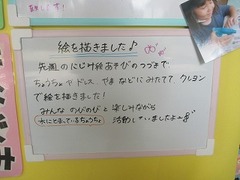 絵を描きました♪
先週のにじみ絵あそびのつづきで
ちょうちょやドレス やまなどにみたてて クレヨン
で絵を描きました!
みんな のびのびと 楽しみながら
活動していましたよ〜
水にとまっているちょうちょ